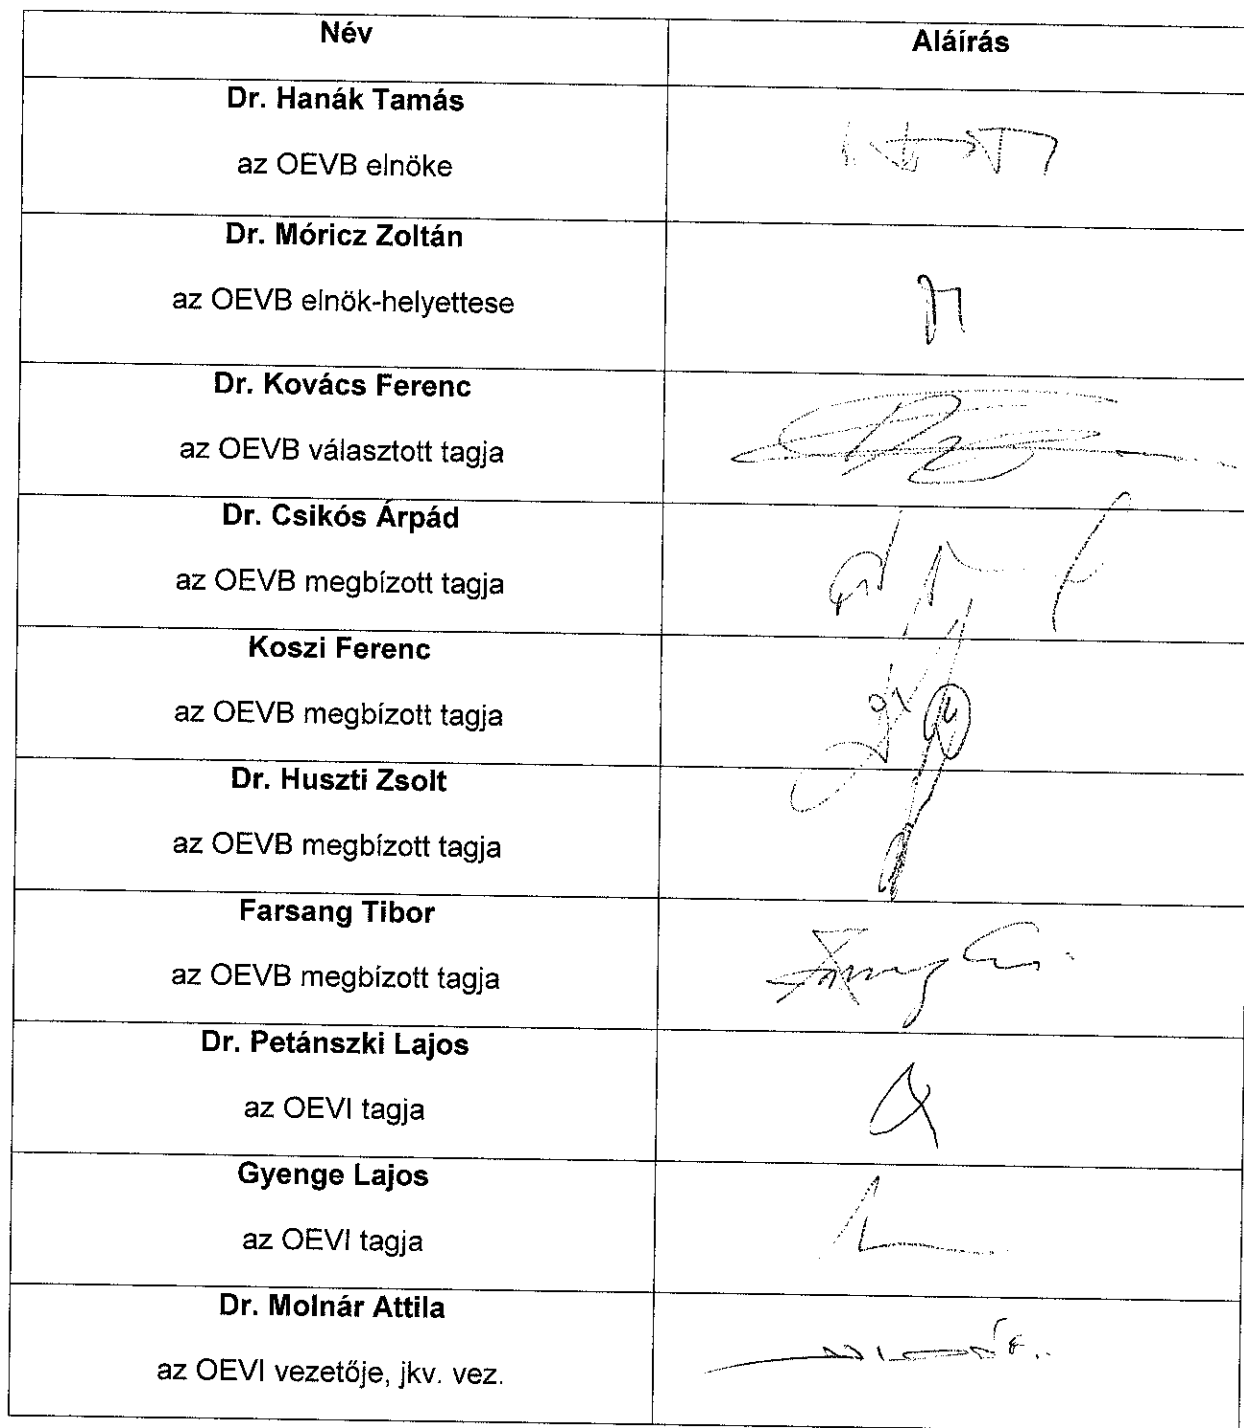 Név Aláírás
Dr. Hanák Tamás
az OEVB elnöke
Dr. Móricz Zoltán
az OEVB elnök-helyettese
Dr. Kovács Ferenc
az OEVB választott tagja
Dr. Csikós Árpád
az OEVB megbízott tagja
Koszi Ferenc
az OEVB megbízott tagja
Dr. Huszti Zsolt
az OEVB megbízott tagja
Farsang Tibor
az OEVB megbízott tagja
Dr. Petánszki Lajos
az OEVI tagja
Gyenge Lajos
az OEVI tagja
Dr. Molnár Attila
az OEVI vezetője, jkv. vez.